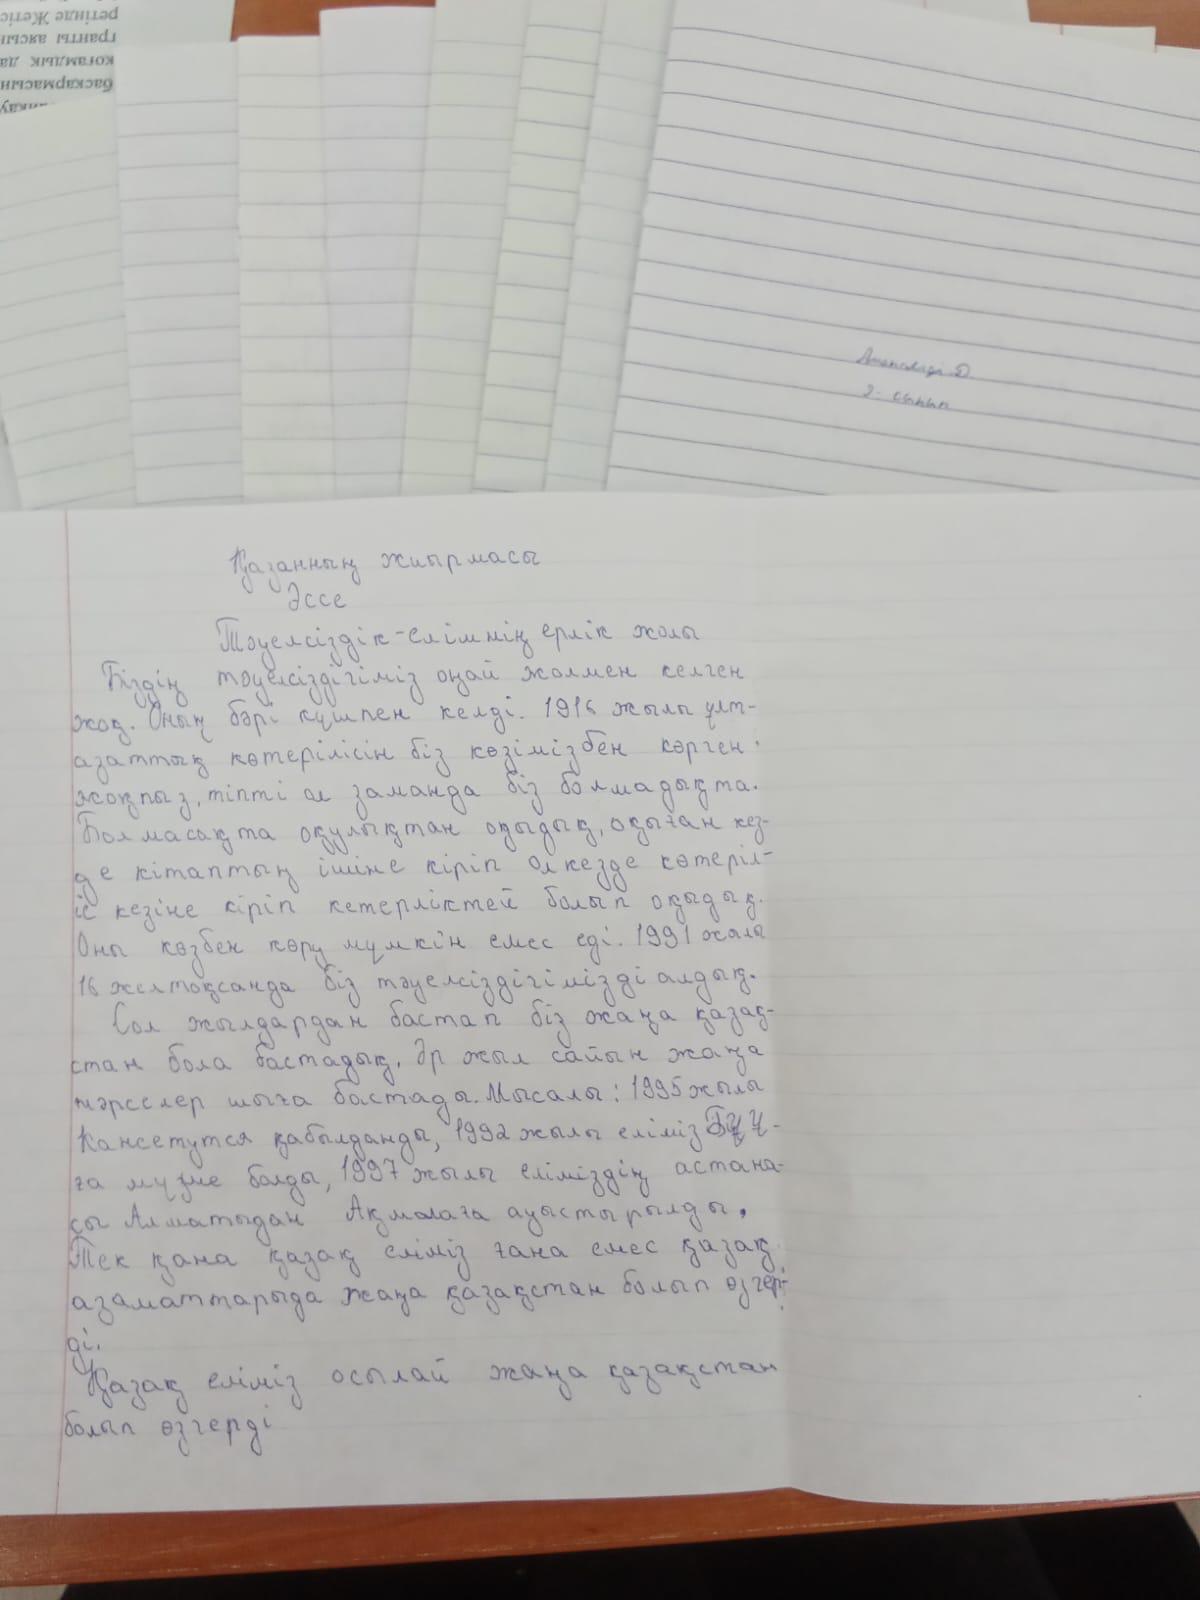 Қазанның жиырмасы
Эссе
Тәуелсіздік-елімнің ерлік жолы
Біздің тәуелсіздігіміз оңай жолмен келген
жоқ. Оның бәрі күшпен келді. 1916 жылы ұлт-
азаттық көтерілісін біз көзімізбен көрген
жоқпыз, тіпті ол заманда біз болмадықта.
Болмасақта оқулықтан оқыдық, оқыған кез-
де кітаптың ішіне кіріп ол кезде көтеріл-
іс кезіне кіріп кетерліктей болып оқыдық.
Оны көзбен көру мүмкін емес еді. 1991 жылы
16 желтоқсанда біз тәуелсіздігімізді алдық.
Сол жылдардан бастап біз жаңа қазақ-
стан бола бастадық. Әр жыл сайын жаңа
нәрселер шыға бастады. Мысалы: 1995 жылы
Кансетутся қабылданды, 1992 жылы еліміз БҰҰ-
ға мүше болды, 1997 жылы еліміздің астана-
сы Алматыдан Ақмолаға ауыстырылды.
Тек қана қазақ еліміз ғана емес қазақ
азаматтарыда жаңа қазақстан болып өзгер-
ді.
Қазақ еліміз осылай жаңа қазақстан
болып өзгерді
2- сынып
ретінде Жетіс
гранты аясын
қоғамдық да
басқармасын